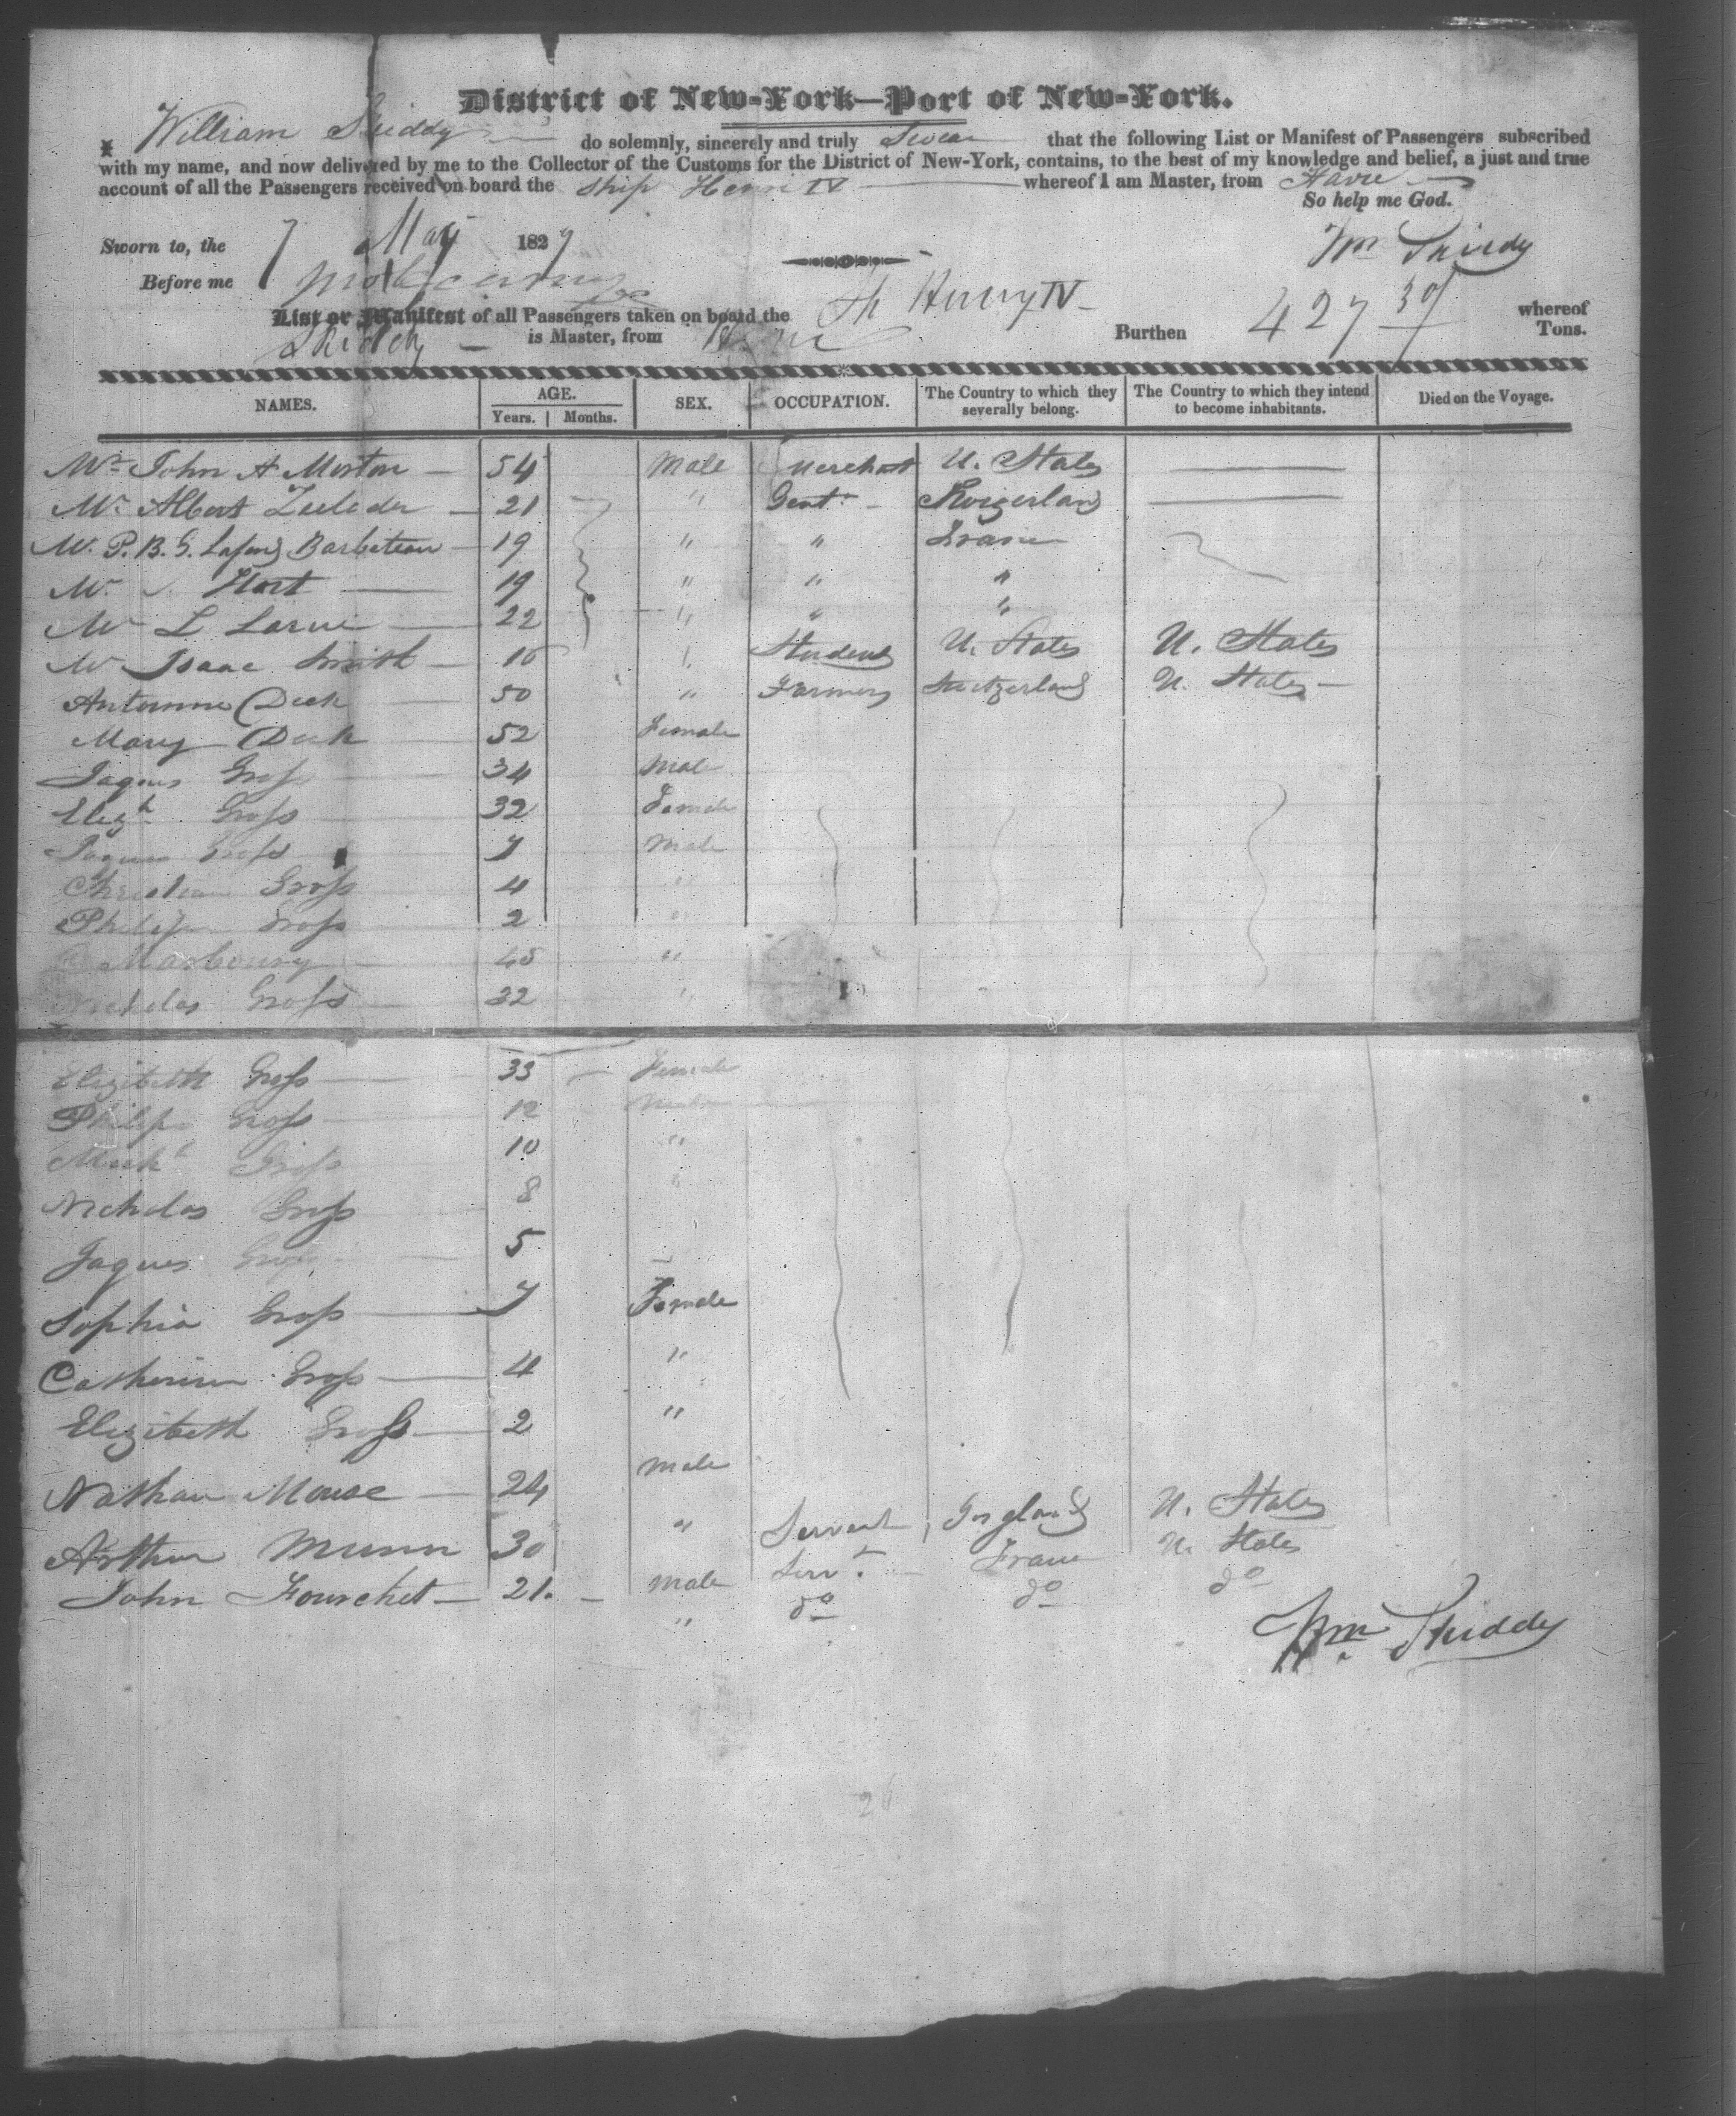 District of New-York—Port of New-York.
I William Skiddy do solemnly, sincerely and truly Swear that the following List or Manifest of Passengers subscribed
with my name, and now delivered by me to the Collector of the Customs for the District of New-York, contains, to the best of my knowledge and belief, a just and true
account of all the Passengers received on board the Ship Henri IV whereof I am Master, from Havre
So help me God.
Sworn to, the 7 May 1827 Wm Skiddy
Before me
List or Manifest of all Passengers taken on board the Sh Henry IV whereof
Skiddy is Master, from Havre Burthen 427 Tons.
NAMES. AGE. Years. Months. SEX. OCCUPATION. The Country to which they severally belong. The Country to which they intend to become inhabitants. Died on the Voyage.
Mr John A Morton 54 Male Merchant U. States
Mr Albert Zeeleder 21 " Gent. Switzerland
Mr. P. B. G. Lafond Barbeteau 19 " " France
Mr Hart 19 " " "
Mr L Larue 22 " " "
Mr Isaac Smith 16 " Student U. States U. States
Antoinne Deck 50 " Farmers Switzerland U. States
Mary Deck 52 Female
Jaques Gross 34 Male
Elizh Gross 32 Female
Jaques Gross 7 Male
Christian Gross 4 "
Philip Gross 2 "
Marbourg 45 "
Nicholas Gross 32 "
Elizibeth Gross 33 Female
Philip Gross 12 Male
Michl Gross 10 "
Nicholas Gross 8 "
Jaques Gross 5
Sophia Gross 7 Female
Catherine Gross 4 "
Elizibeth Gross 2 "
Nathan Morse 24 Male
Arthur Munn 30 " Servant England U. States
John Fourchet 21 Male Servt France U. States
" do do do
Wm Skiddy
26